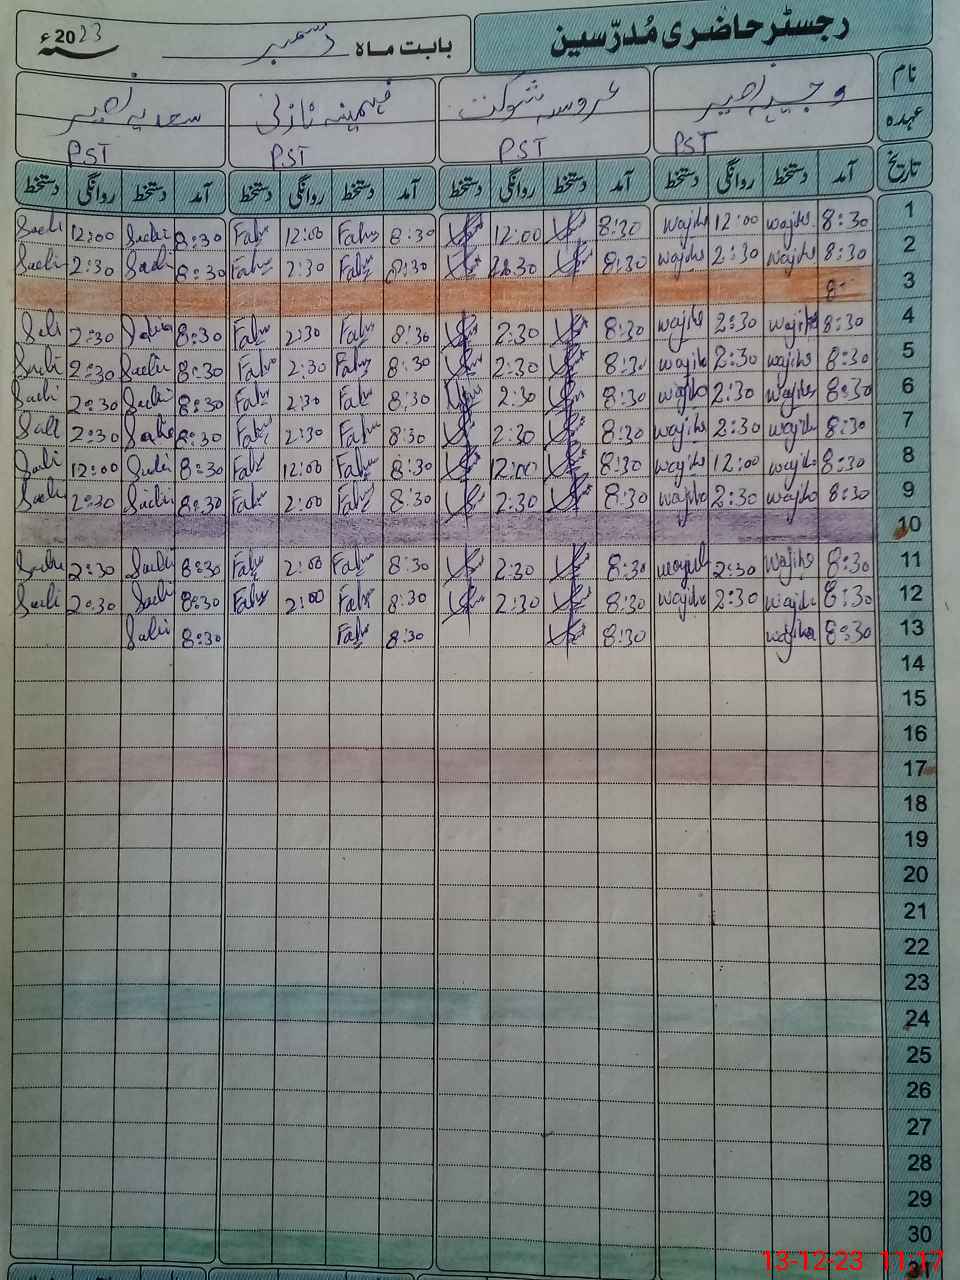 رجسٹر حاضری مُدرّسین
بابت ماہ دسمبر 2023ء
نام وجیہہ نصیر عروسہ شوکت فہمینہ نازلی سعدیہ نصیر
عہدہ PST PST PST PST
تاریخ آمد دستخط روانگی دستخط آمد دستخط روانگی دستخط آمد دستخط روانگی دستخط آمد دستخط روانگی دستخط
1 8:30 wajiha 12:00 wajiha 8:30 12:00 8:30 Fahm 12:00 Fahm 8:30 Sadi 12:00 Sadi
2 8:30 wajiha 2:30 wajiha 8:30 2:30 8:30 Fahm 2:30 Fahm 8:30 Sadi 2:30 Sadi
3 8:
4 8:30 wajiha 2:30 wajiha 8:30 2:30 8:30 Fahm 2:30 Fahm 8:30 Sadi 2:30 Sadi
5 8:30 wajiha 2:30 wajiha 8:30 2:30 8:30 Fahm 2:30 Fahm 8:30 Sadi 2:30 Sadi
6 8:30 wajiha 2:30 wajiha 8:30 2:30 8:30 Fahm 2:30 Fahm 8:30 Sadi 2:30 Sadi
7 8:30 wajiha 2:30 wajiha 8:30 2:30 8:30 Fahm 2:30 Fahm 8:30 Sadi 2:30 Sadi
8 8:30 wajiha 12:00 wajiha 8:30 12:00 8:30 Fahm 12:00 Fahm 8:30 Sadi 12:00 Sadi
9 8:30 wajiha 2:30 wajiha 8:30 2:30 8:30 Fahm 2:00 Fahm 8:30 Sadi 2:30 Sadi
10
11 8:30 wajiha 2:30 wajiha 8:30 2:30 8:30 Fahm 2:00 Fahm 8:30 Sadi 2:30 Sadi
12 8:30 wajiha 2:30 wajiha 8:30 2:30 8:30 Fahm 2:00 Fahm 8:30 Sadi 2:30 Sadi
13 8:30 wajiha 8:30 8:30 Fahm 8:30 Sadi
14
15
16
17
18
19
20
21
22
23
24
25
26
27
28
29
30
31
13-12-23 11:17